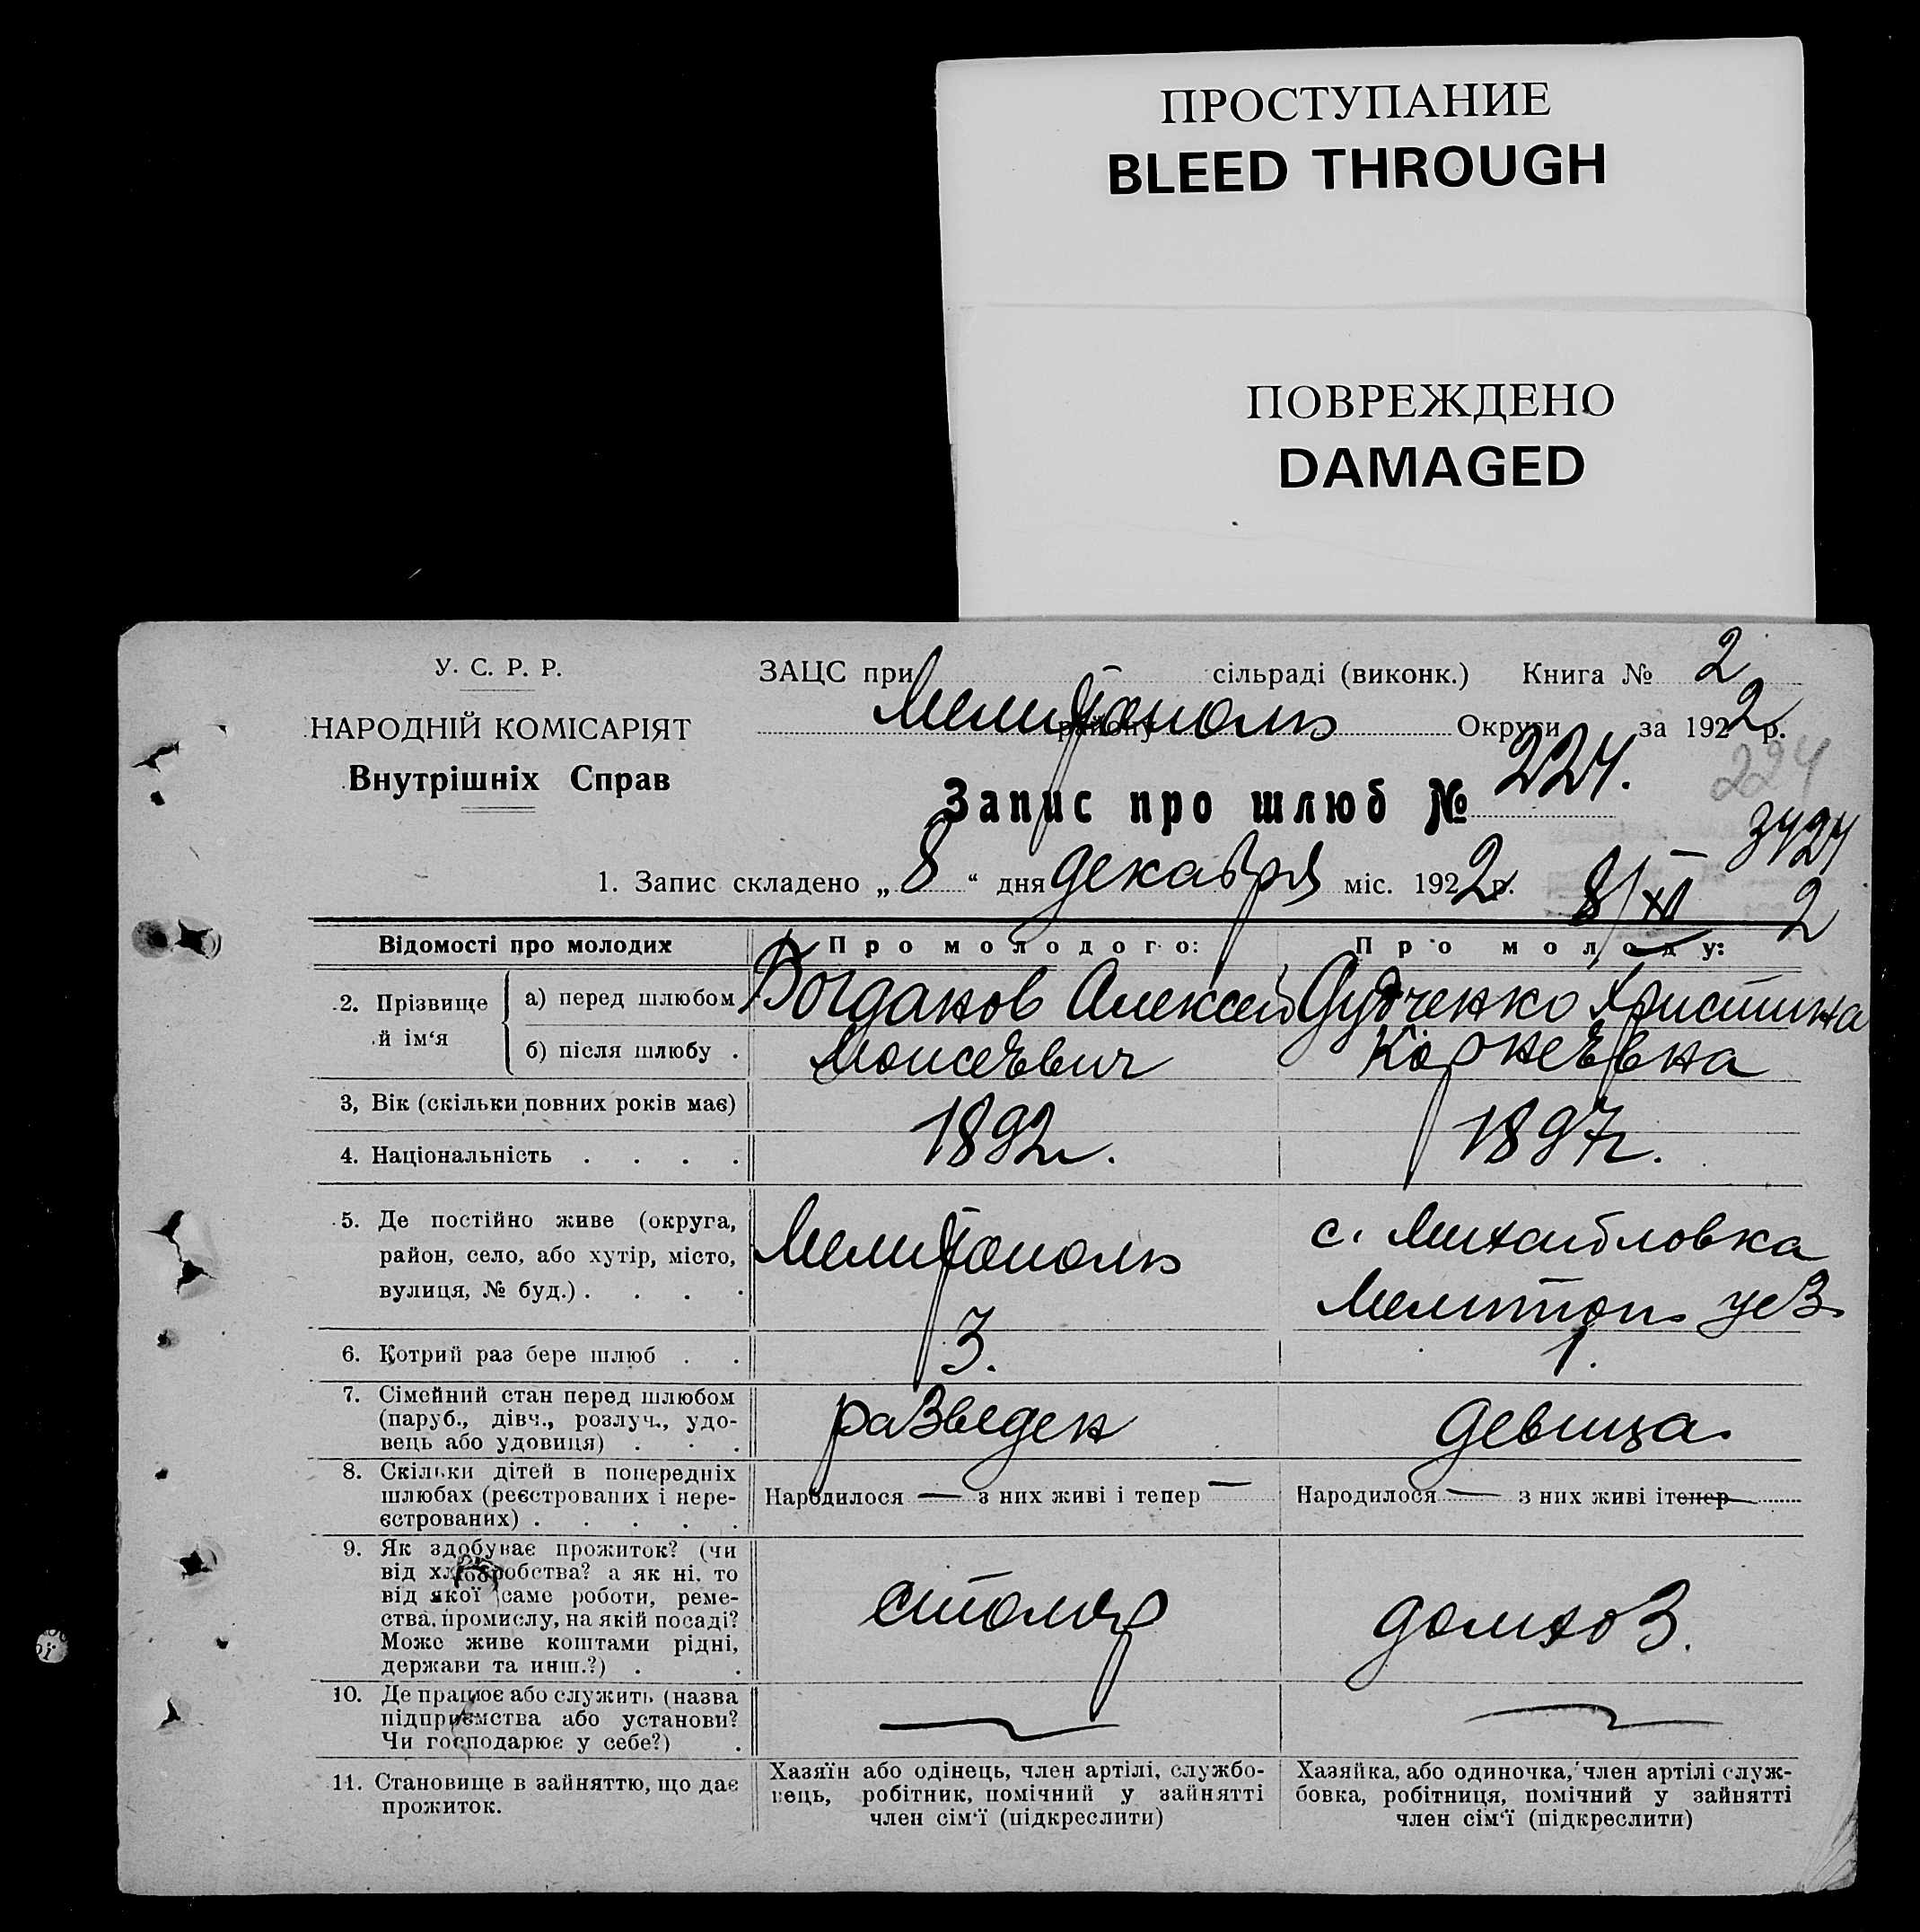 ПРОСТУПАНИЕ
BLEED THROUGH
ПОВРЕЖДЕНО
DAMAGED
У. С. Р. Р.
НАРОДНІЙ КОМІСАРІЯТ
Внутрішніх Справ
ЗАЦС при сільраді (виконк.) Книга № 2
Мелитополь району Округи за 1922 р.
Запис про шлюб № 224.
224
3424
1. Запис складено „8“ дня декабря міс. 1922 р. 8/XII 2
Відомості про молодих
Про молодого:
Про молоду:
2. Прізвище й ім‘я
а) перед шлюбом
б) після шлюбу .
Богданов Алексей
Моисеевич
Дудченко Христина
Корнеевна
3, Вік (скільки повних років має)
4. Національність . . . .
1892 г.
1897 г.
5. Де постійно живе (округа,
район, село, або хутір, місто,
вулиця, № буд.) . . . .
Мелитополь
с. Михайловка
Мелитоп. уез.
6. Котрий раз бере шлюб . .
3.
1.
7. Сімейний стан перед шлюбом
(паруб., дівч., розлуч., удо-
вець або удовиця) . . .
разведен
девица
8. Скільки дітей в попередніх
шлюбах (реєстрованих і нере-
єстрованих) . . . . .
Народилося — з них живі і тепер —
Народилося — з них живі і тепер —
9. Як здобуває прожиток? (чи
від хлiборобства? а як ні, то
від якої саме роботи, реме-
ства, промислу, на якій посаді?
Може живе коштами рідні,
держави та инш.?) . .
столяр
домхоз.
10. Де працює або служить (назва
підприємства або установи?
Чи господарює у себе?) .
—
—
11. Становище в зайняттю, що дає
прожиток.
Хазяїн або одінець, член артілі, службо-
вець, робітник, помічний у зайнятті
член сім‘ї (підкреслити)
Хазяйка, або одиночка, член артілі служ-
бовка, робітниця, помічний у зайнятті
член сім‘ї (підкреслити)